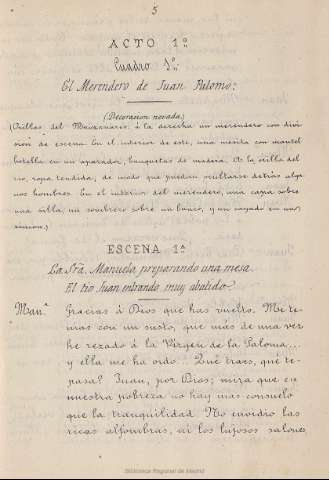 5
ACTO 1º
Cuadro 1º
El Merendero de Juan Palomo.
(Decoracion nevada.)
(Orillas del Manzanares: á la derecha un merendero con divi
sion de escena. En el interior de este, una mesita con mantel
botella en un aparador, banquetas de madera. A la orilla del
rio, ropa tendida, de modo que puedan ocultarse detrás algu
nos hombres. En el interior del merendero, una capa sobre
una silla, un sombrero sobre un banco, y un cayado en un
rincon.)
ESCENA 1ª
La Sra. Manuela, preparando una mesa.
El tio Juan entrando muy abatido.
Manª Gracias á Dios que has vuelto. Me te-
nias con un susto, que más de una vez
he rezado á la Virgen de la Paloma...
y ella me ha oido... Qué traes, qué te
pasa? Juan, por Dios; mira que en
nuestra pobreza no hay mas consuelo
que la tranquilidad. No envidio las
ricas alfombras, ni los lujosos salones
Biblioteca Regional de Madrid